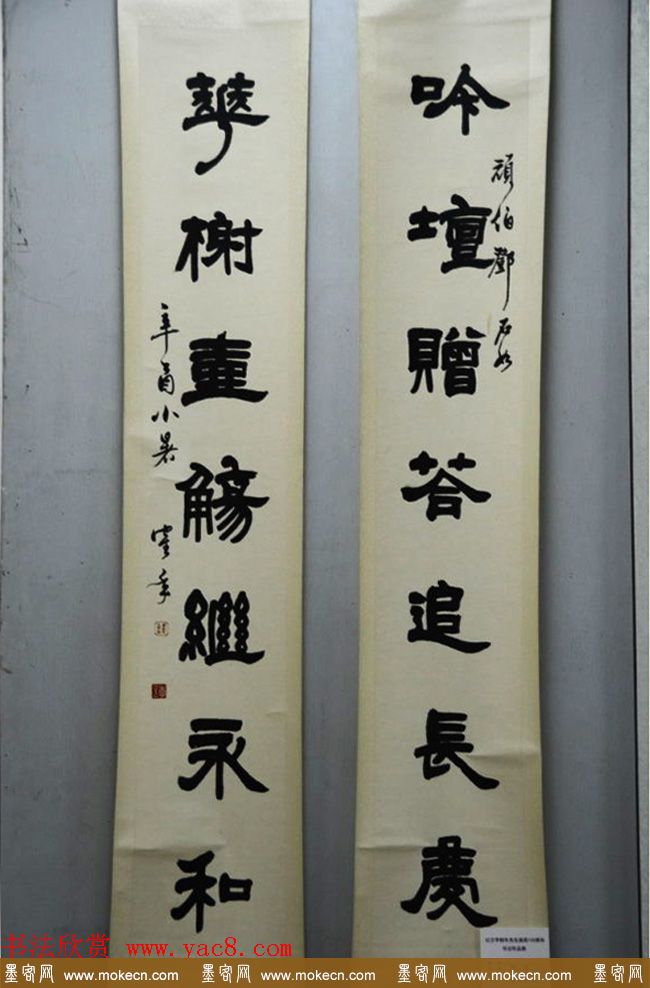 吟壇贈荅追長慶
頑伯鄧石如
華榭壷觴繼永和
辛酉小暑
书法欣赏 www.yac8.com
墨客网 www.mokecn.com 墨客网 www.mokecn.com 墨客网 www.mokecn.com